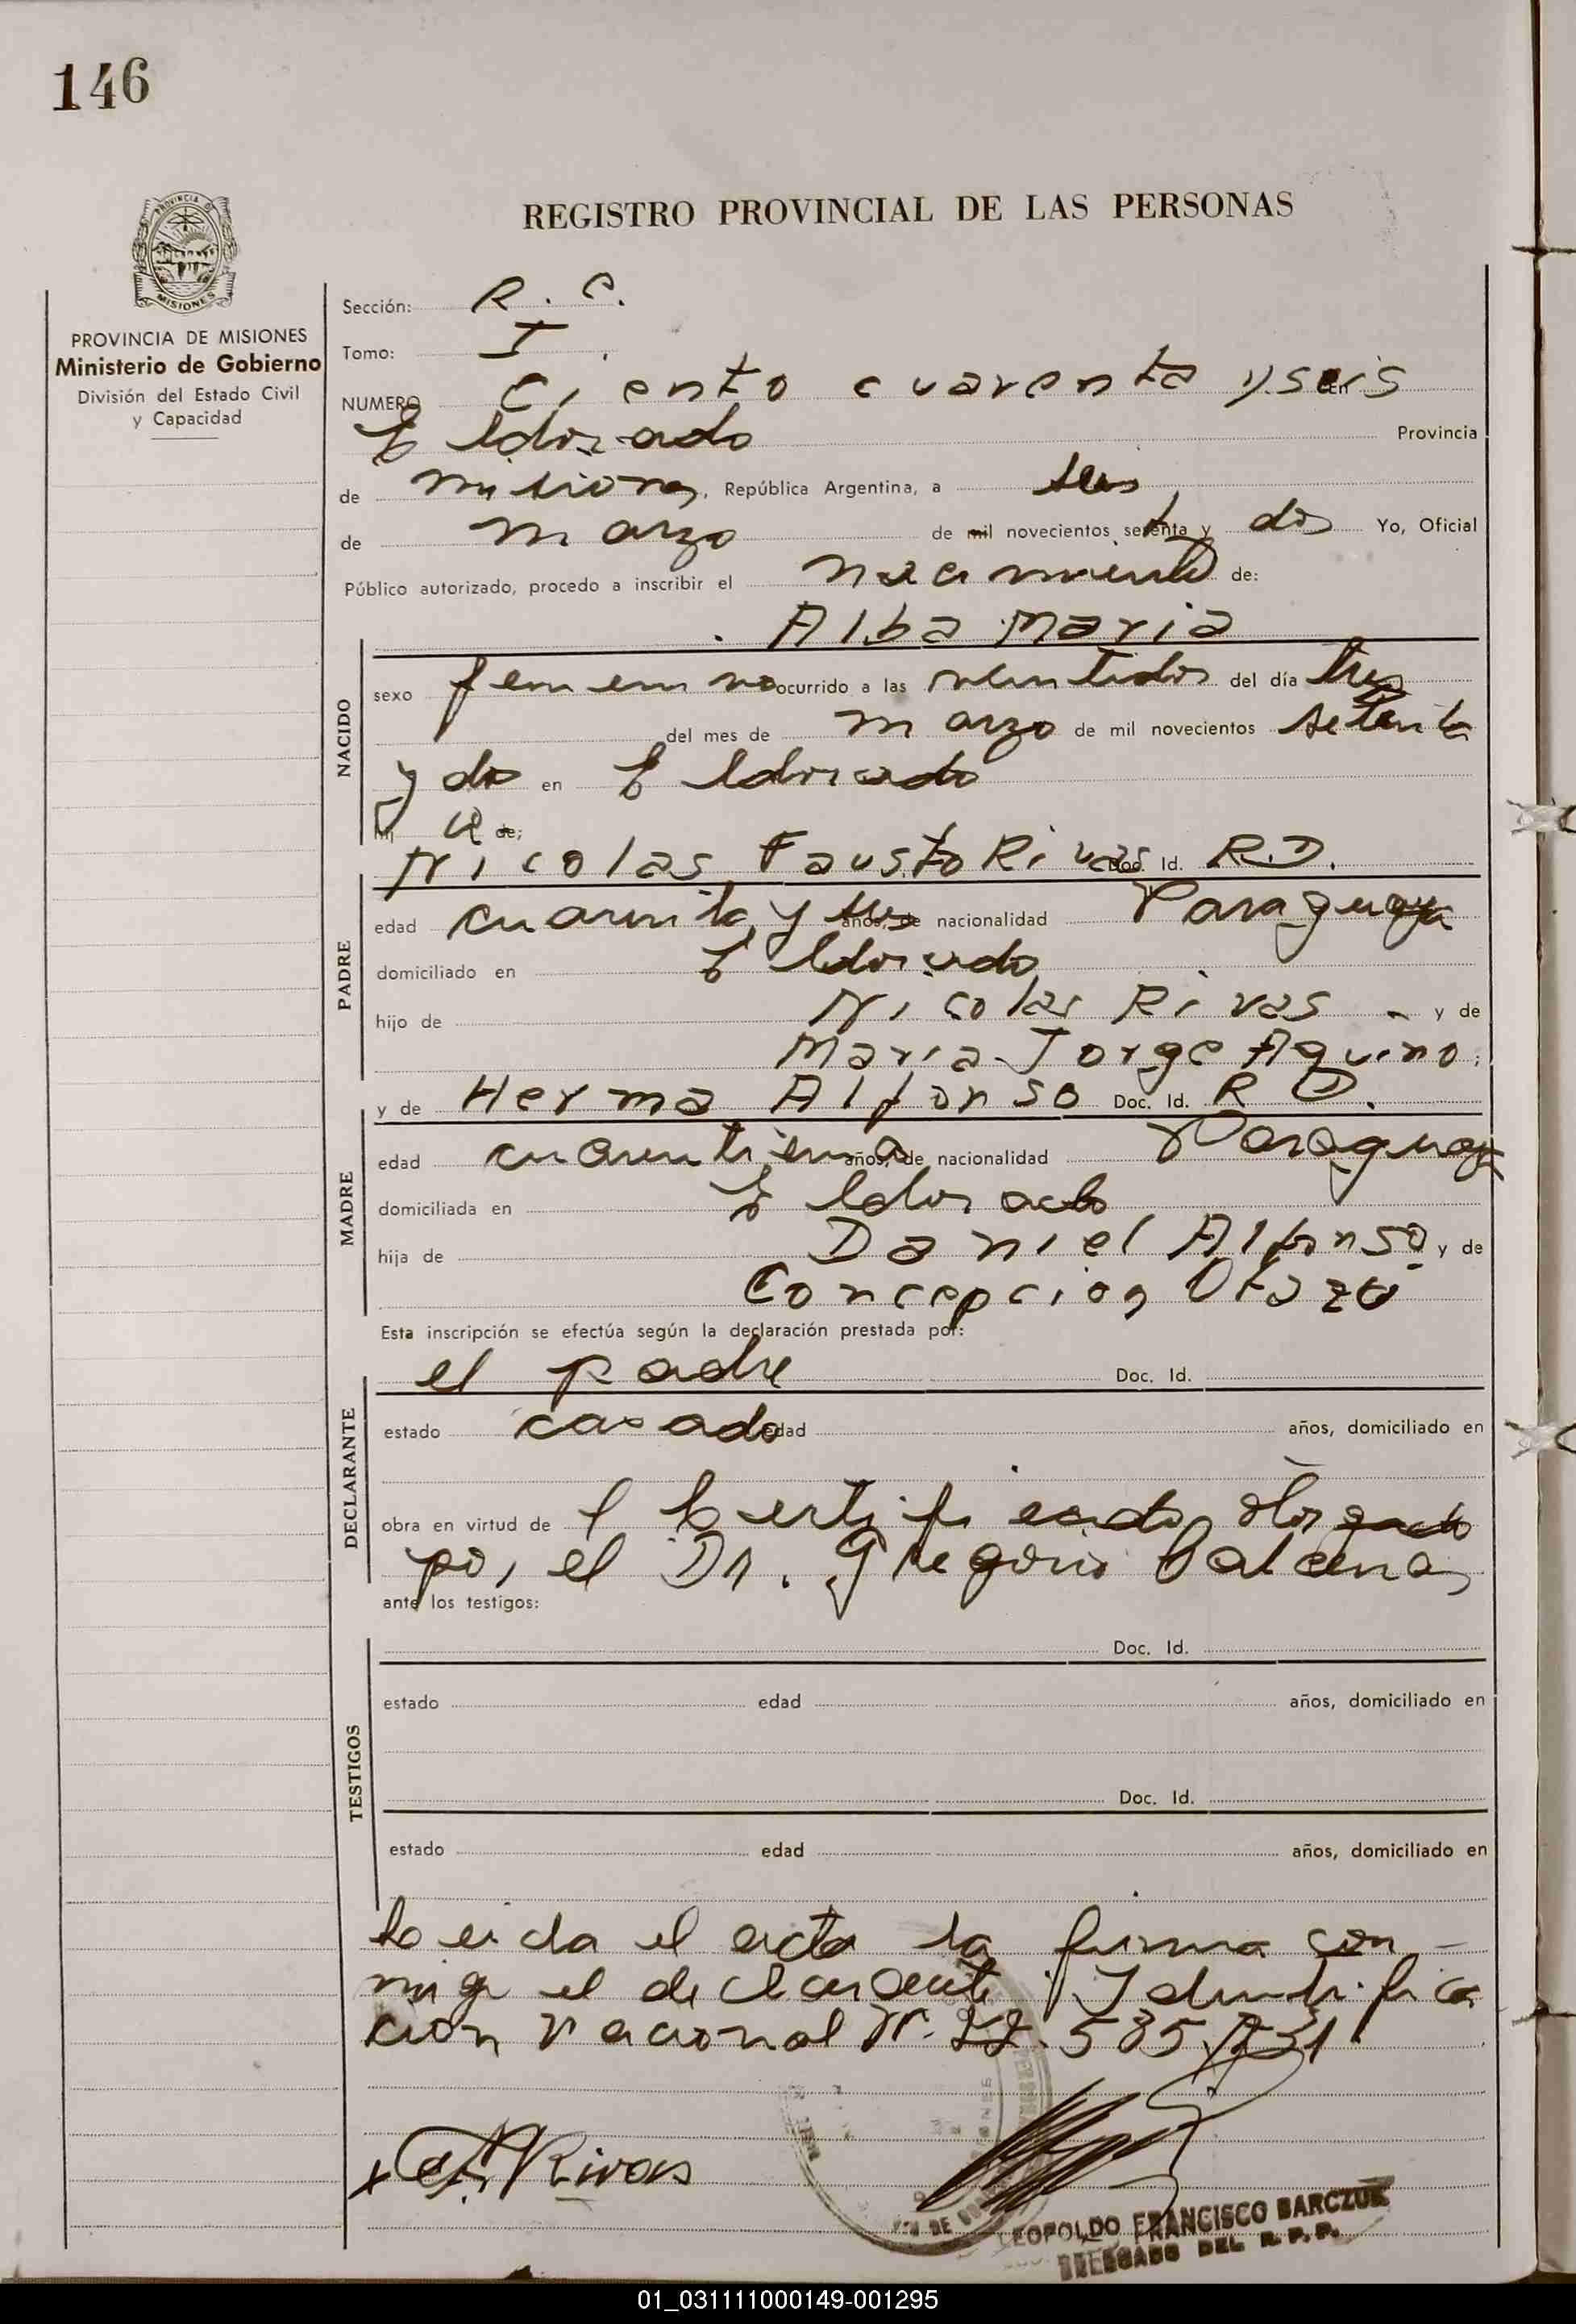 146
REGISTRO PROVINCIAL DE LAS PERSONAS
PROVINCIA DE MISIONES
Ministerio de Gobierno
División del Estado Civil
y Capacidad
Sección: R. C.
Tomo: I
NUMERO Ciento cuarenta y seis en
Eldorado Provincia
de misiones, República Argentina, a seis
de marzo de mil novecientos setenta y dos Yo, Oficial
Público autorizado, procedo a inscribir el nacimiento de:
Alba Maria
NACIDO
sexo femenino ocurrido a las veintidos del día tres
del mes de marzo de mil novecientos setenta
y dos en Eldorado
de:
Nicolas Fausto Rivas Doc. Id. R.D.
PADRE
edad cuarenta y tres años, de nacionalidad Paraguaya
domiciliado en Eldorado
hijo de Nicolas Rivas y de
Maria Jorge Aquino;
y de Herma Alfonso Doc. Id. R D.
MADRE
edad años, de nacionalidad Paraguaya
domiciliada en Eldorado
hija de Daniel Alfonso y de
Concepcion Otazú
Esta inscripción se efectúa según la declaración prestada por:
el padre Doc. Id.
DECLARANTE
estado casado edad años, domiciliado en
obra en virtud de l certificado otorgado
por el Dr. Gregorio
ante los testigos:
Doc. Id.
TESTIGOS
estado edad años, domiciliado en
Doc. Id.
estado edad años, domiciliado en
Leida el acta la firma con-
migo el declarante, Identifica
cion Nacional Nº.
Rivas
LEOPOLDO FRANCISCO BARCZUK
DELEGADO DEL R. P. P.
01_031111000149-001295